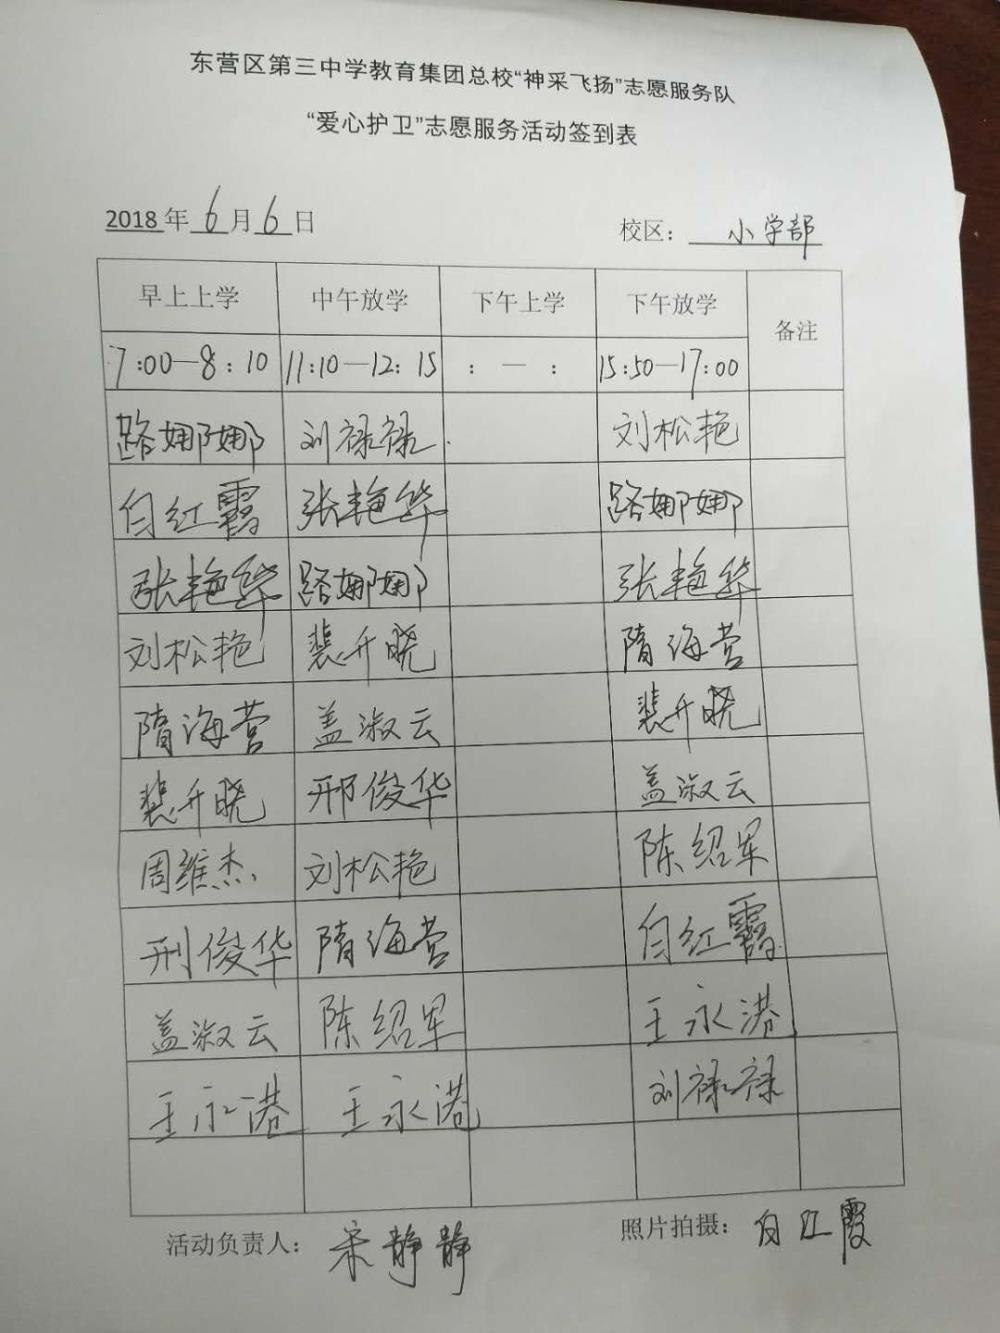 东营区第三中学教育集团总校“神采飞扬”志愿服务队
“爱心护卫”志愿服务活动签到表
2018年6月6日 校区：小学部
早上上学 中午放学 下午上学 下午放学 备注
7:00—8:10 11:10—12:15 : — : 15:50—17:00
路娜娜 刘禄禄 刘松艳
白红霞 张艳华 路娜娜
张艳华 路娜娜 张艳华
刘松艳 裴升晓 隋海营
隋海营 盖淑云 裴升晓
裴升晓 邢俊华 盖淑云
周维杰 刘松艳 陈绍军
邢俊华 隋海营 白红霞
盖淑云 陈绍军 王永港
王永港 王永港 刘禄禄
活动负责人：宋静静 照片拍摄：白红霞